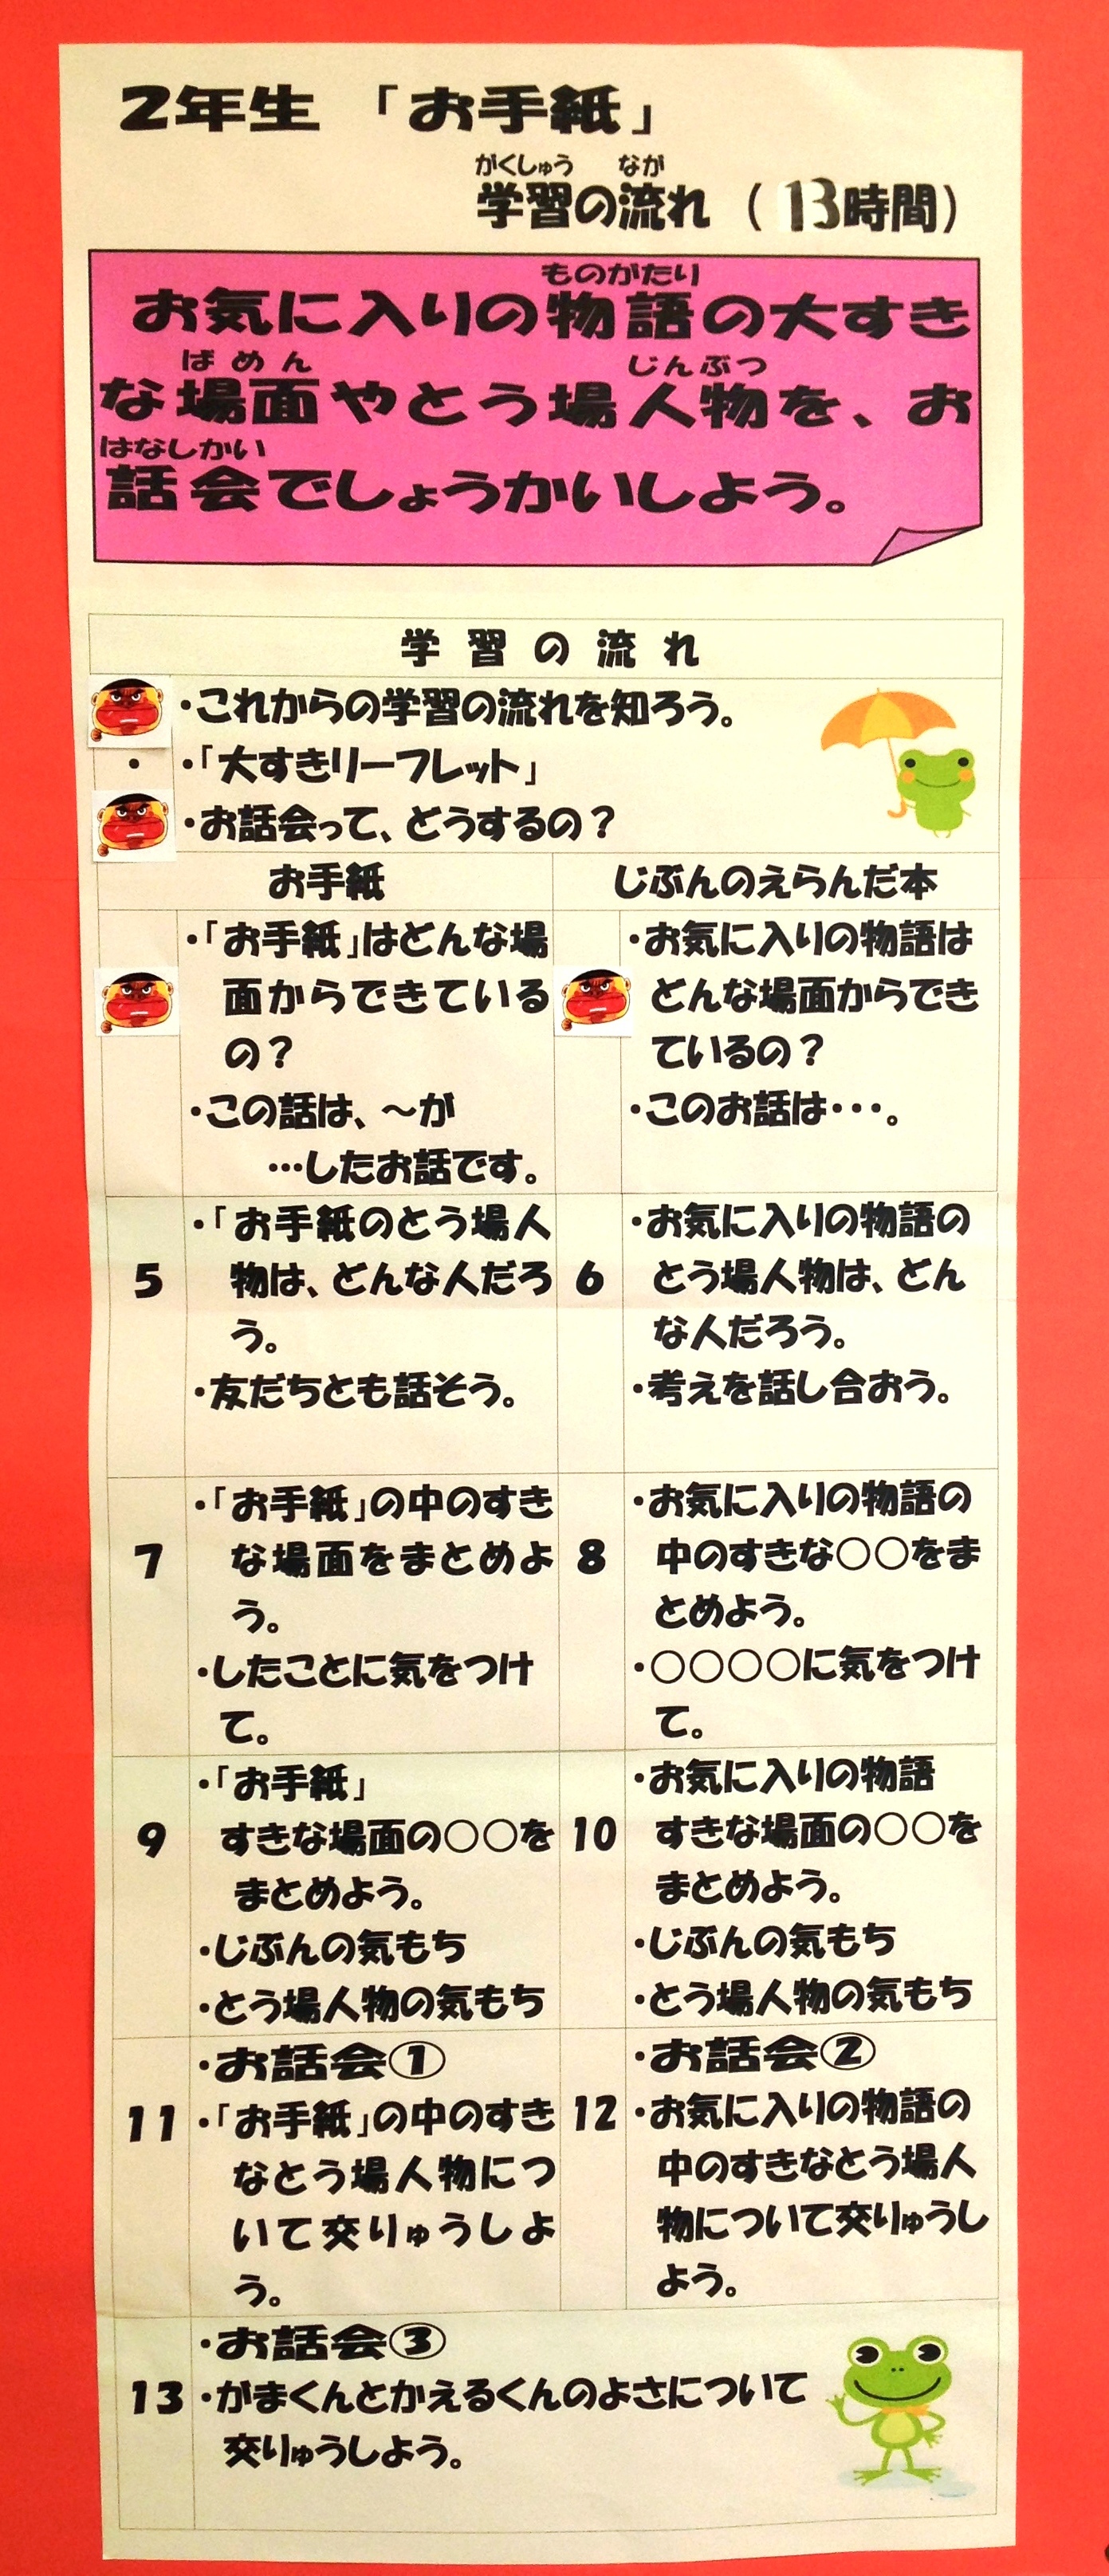 2年生 「お手紙」
がくしゅう なが
学習の流れ（13時間）
ものがたり
お気に入りの物語の大すき
ばめん じんぶつ
な場面やとう場人物を、お
はなしかい
話会でしょうかいしよう。
学習の流れ
・これからの学習の流れを知ろう。
・ ・「大すきリーフレット」
・お話会って、どうするの？
お手紙 じぶんのえらんだ本
・「お手紙」はどんな場
面からできている
の？
・この話は、～が
…したお話です。
・お気に入りの物語は
どんな場面からでき
ているの？
・このお話は・・・。
5
・「お手紙のとう場人
物は、どんな人だろ
う。
・友だちとも話そう。
6
・お気に入りの物語の
とう場人物は、どん
な人だろう。
・考えを話し合おう。
7
・「お手紙」の中のすき
な場面をまとめよ
う。
・したことに気をつけ
て。
8
・お気に入りの物語の
中のすきな○○をま
とめよう。
・○○○○に気をつけ
て。
9
・「お手紙」
すきな場面の○○を
まとめよう。
・じぶんの気もち
・とう場人物の気もち
10
・お気に入りの物語
すきな場面の○○を
まとめよう。
・じぶんの気もち
・とう場人物の気もち
11
・お話会①
・「お手紙」の中のすき
なとう場人物につ
いて交りゅうしよ
う。
12
・お話会②
・お気に入りの物語の
中のすきなとう場人
物について交りゅうし
よう。
13
・お話会③
・がまくんとかえるくんのよさについて
交りゅうしよう。